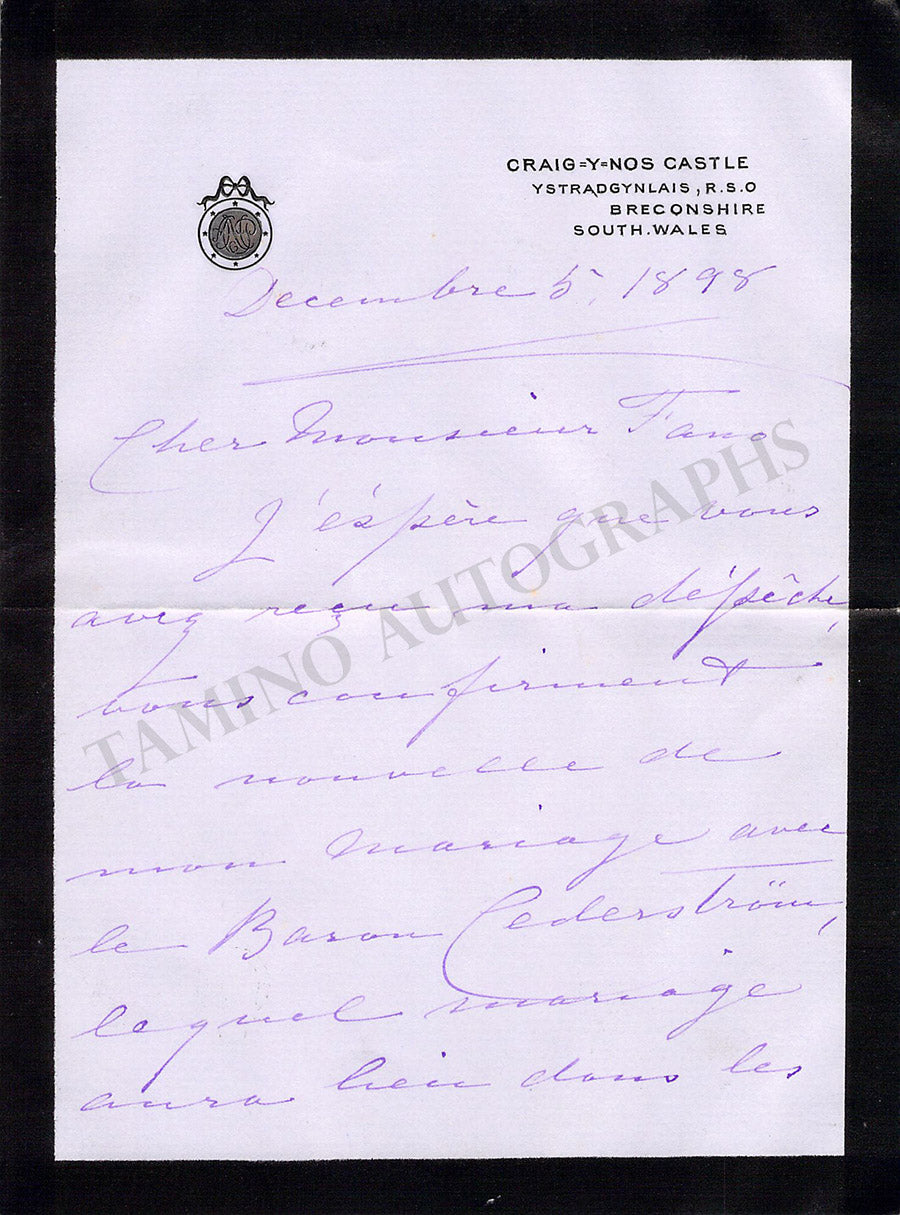 CRAIG=Y=NOS CASTLE
YSTRADGYNLAIS, R.S.O
BRECONSHIRE
SOUTH.WALES
Decembre 5, 1898
Cher Monsieur Fano
J'éspère que vous
avez reçu ma dépêche,
vous confirment
la nouvelle de
mon mariage avec
le Baron Cederström,
lequel mariage
aura lieu dans les
TAMINO AUTOGRAPHS